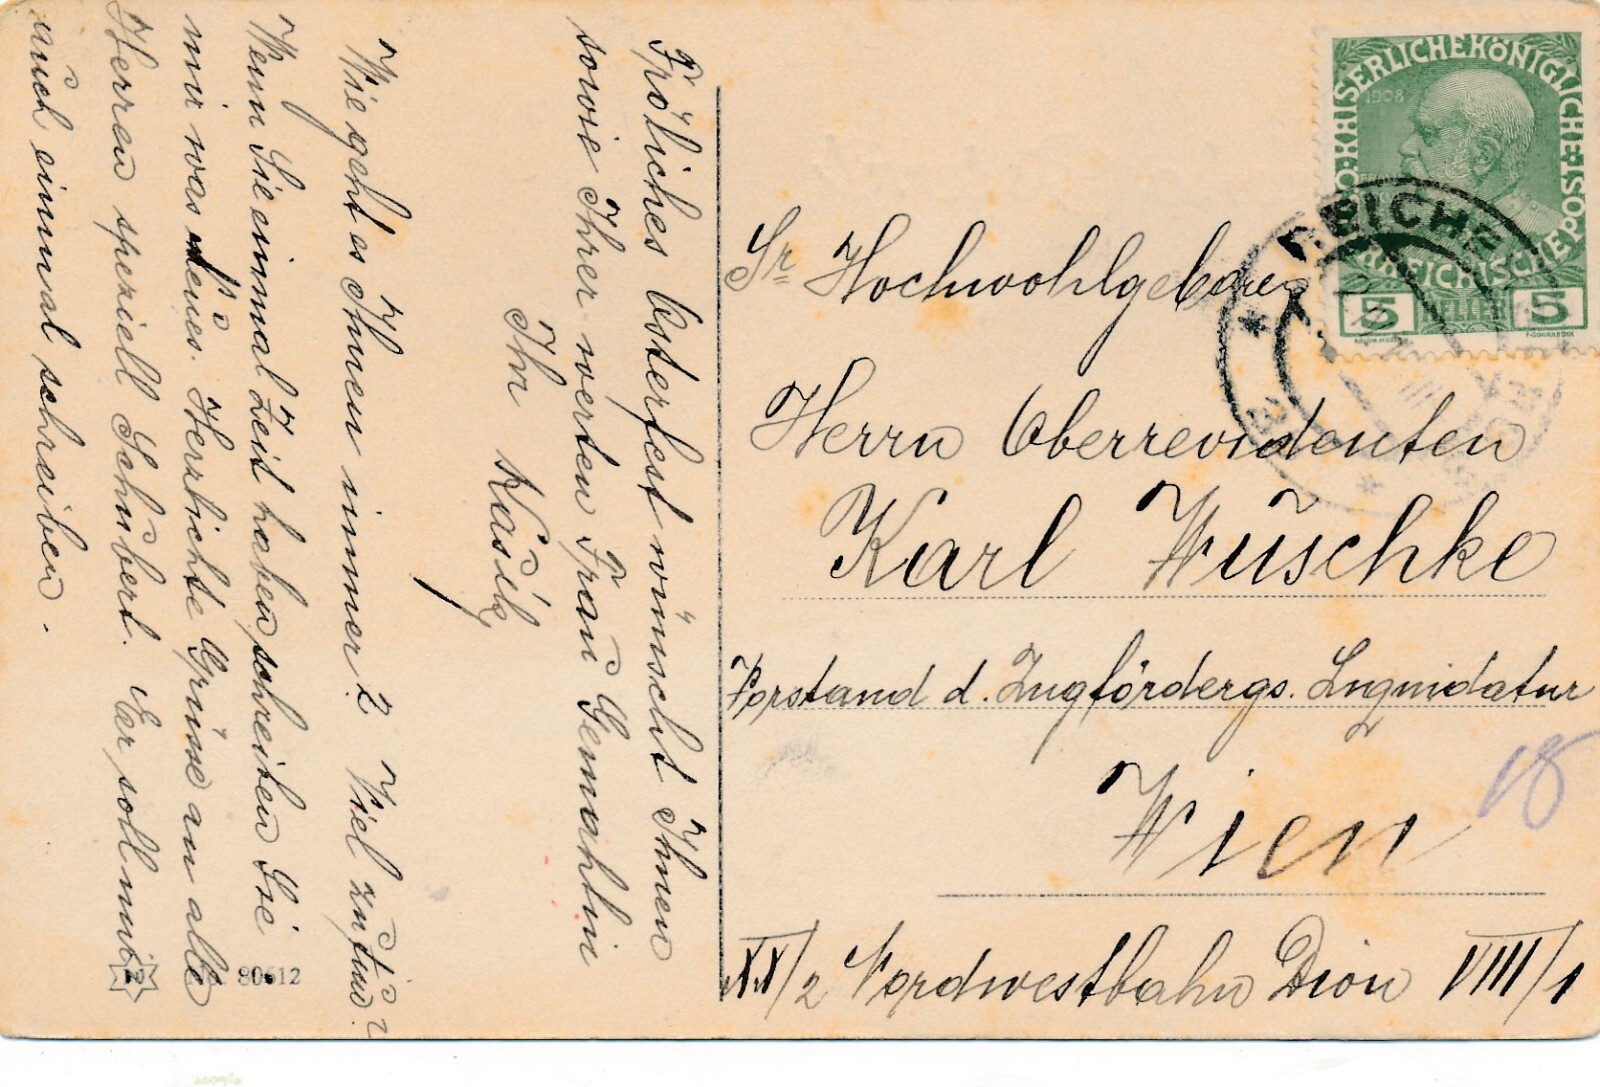 Frölliches Osterfest wünscht Ihnen
sowie Ihrer werten Frau Gemahlin
Ihr Kasik
Wie geht es Ihnen immer? Viel zu tun?
Wenn Sie einmal Zeit haben, schreiben Sie
mir was Neues. Herzlichste Grüsse an alle
Herren speziell Schubert. Er soll mir
auch einmal schreiben.
80612
KAISERLICHE KÖNIGLICHE ÖSTERREICHISCHE POST
1908
5 HELLER 5
REICHE
Sr Hochwohlgeboren
Herrn Oberrevidenten
Karl Wuschke
Vorstand d. Zugfördergs. Liquidatur
Wien
18
XX/2 Nordwestbahn Dion VIII/1